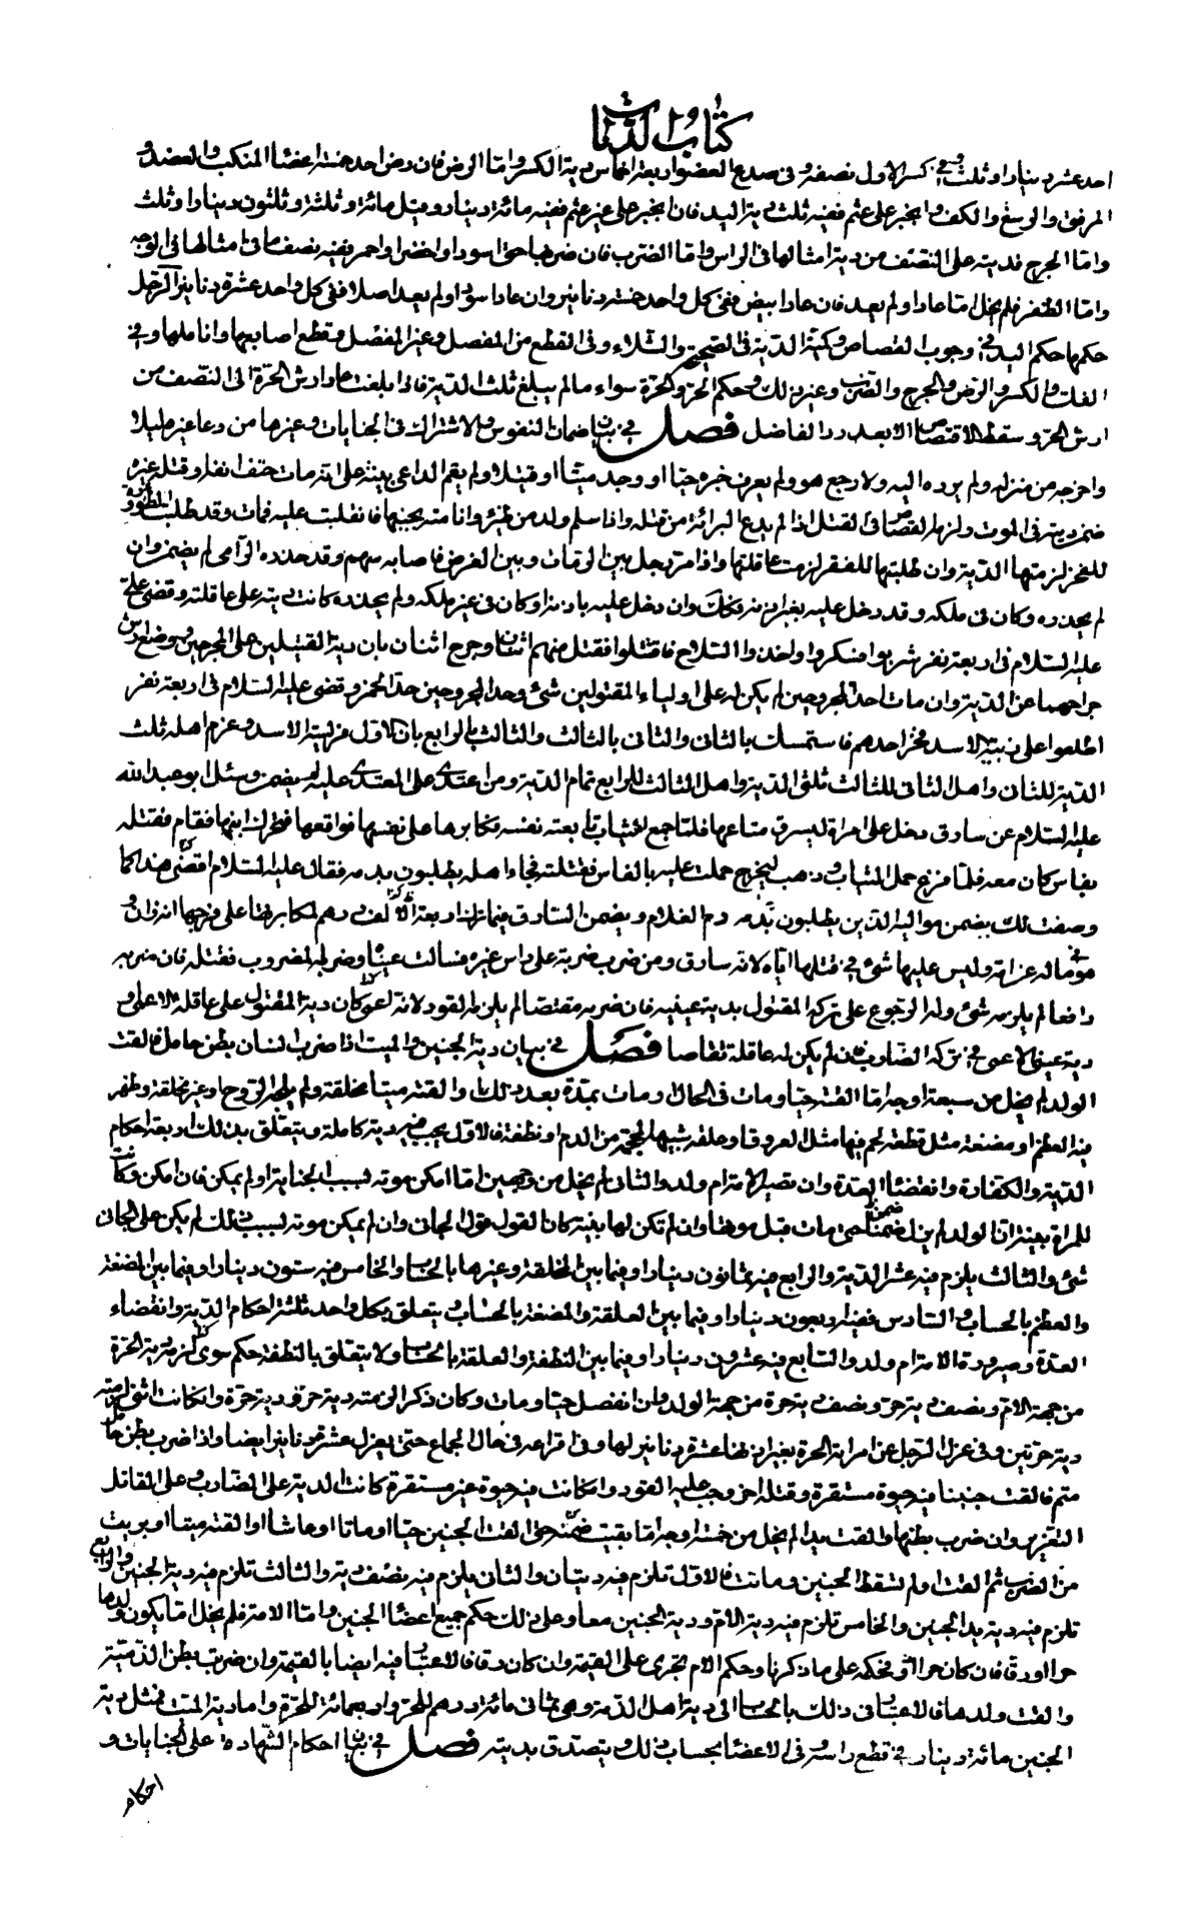 كتاب الديات
احد عشر دينارا وثلث وفي كسر الاول نصفه وفى صدع العضو اربعة اخماس دية الكسر واما الرض فان رض احد خمسة اعضاء المنكب والعضد و
المرفق والرسغ والكف وانجبر على عثم ففيه ثلث دية اليد فان انجبر على غير عثم ففيه مائة دينار وقيل مائة وثلثة وثلثون دينارا وثلث
واما الجرح فديته على النصف من دية امثالها فى الراس واما الضرب فان ضربها حتى اسود او اخضر او احمر ففيه نصف ما فى امثالها فى الوجه
واما الظفر فلم يخل اما عاد او لم يعد فان عاد ابيض ففى كل واحد خمسة دنانير وان عاد اسود او لم يعد اصلا ففى كل واحد عشرة دنانير الرجل
حكمها حكم اليد في وجوب القصاص وكمية الدية فى الصحيحة والشلاء وفى القطع من المفصل وغير المفصل وقطع اصابعها واناملها وفي
الفك والكسر والرض والجرح والضرب وغير ذلك وحكم الحر والحرة سواء ما لم يبلغ ثلث الدية فاذا بلغت عاد ارش الحرة الى النصف من
ارش الحر وسقط الاقتصاص الا بعد رد الفاضل فصل في بيان ضمان النفوس والاشتراك فى الجنايات وغيرها من دعا غيره ليلا
واخرجه من منزله ولم يرده اليه ولا رجع هو ولم يعرف خبره حيا او وجد ميتا او قتيلا ولم يقم الداعى بينة على انه مات حتف انفه او قتله غيره
ضمن ديته فى الموت ولزم القصاص فى القتل اذا لم يدع البرائة من قتله واذا سلم ولد من ظئر وانامته بجنبها فانقلبت عليه فمات وقد طلبت المظؤرة
للفخر لزمتها الدية وان طلبتها للفقر لزمت عاقلتها واذا مر رجل بين الرماة وبين الغرض فاصابه سهم وقد حذره الرامى لم يضمن وان
لم يحذره وكان فى ملكه وقد دخل عليه بغير اذنه فكذلك وان دخل عليه باذنه او كان فى غير ملكه ولم يحذره كانت ديته على عاقلته وقضى على
عليه السلام فى اربعة نفر شربوا فسكروا واخذوا السلاح فاقتتلوا فقتل منهم اثنان وجرح اثنان بان دية القتيلين على الجرحين ووضع ارش
جراحهما عن الدية وان مات احد المجروحين لم يكن له على اولياء المقتولين شئ وحد المجروحين حد الخمر وقضى عليه السلام فى اربعة نفر
اطلعوا على زبية الاسد فخر احدهم فاستمسك بالثانى والثانى بالثالث والثالث بالرابع بان الاول فريسة الاسد وغرم اهله ثلث
الدية للثانى واهل الثانى للثالث ثلثى الدية واهل الثالث للرابع تمام الدية ومن اعتدى على المعتدى عليه لم يضمن وسئل ابو عبد الله
عليه السلام عن سارق دخل على امراة ليسرق متاعها فلما جمع الثياب تابعته نفسه فكابرها على نفسها فواقعها فتحرك ابنها فقام فقتله
بفاس كان معه فلما فرغ حمل الثياب وذهب ليخرج حملت عليه بالفاس فقتلته فجاء اهله يطلبون بدمه فقال عليه السلام اقض هذا كما
وصفت لك يضمن مواليه الذين يطلبون بدمه دم الغلام ويضمن السارق فيما ترك اربعة آلاف درهم لمكابرتها على فرجها انه زان و
هو فى ماله غرامة وليس عليها شئ في قتلها اياه لانه سارق ومن ضرب ضربة على راس غيره فسالت عيناه وضربه المضروب فقتله فان ضربه
دافعا لم يلزمه شئ وله الرجوع على تركة المقتول بدية عينيه فان ضربه مقتصا لم يلزمه القود لانه اعمى كان دية المقتول على عاقلة الاعمى و
دية عينى الاعمى في تركة الضارب فان لم يكن له عاقلة تقاصا فصل في بيان دية الجنين والميت اذا ضرب انسان بطن حامل فالقت
الولد لم يخل من سبعة اوجه اما القته حيا ومات فى الحال او مات بمدة بعد ذلك او القته ميتا مخلقة ولم يلجه الروح او غير مخلقة وظهر
فيه العظم او مضغة مثل قطعة لحم فيها مثل العروق او علقة شبيه المحجمة من الدم او نطفة فالاول يجب فيه دية كاملة ويتعلق بذلك اربعة احكام
الدية والكفارة وانقضاء العدة وان تصير الامة ام ولد والثانى لم يخل من وجهين اما امكن موته بسبب الجناية او لم يمكن فان امكن وكانت
للمراة بينة ان الولد لم يزل ضمنا حتى مات قبل موتها وان لم تكن لها بينة كان القول قول الجانى وان لم يمكن موته بسبب ذلك لم يكن على الجانى
شئ والثالث يلزم فيه عشر الدية والرابع فيه ثمانون دينارا وفيما بين المخلقة وغيرها بالحساب والخامس فيه ستون دينارا وفيما بين المضغة
والعظم بالحساب والسادس ففيه اربعون دينارا وفيما بين العلقة والمضغة بالحساب ويتعلق بكل واحد ثلثة احكام الدية وانقضاء
العدة وصيرورة الامة ام ولد والسابع فيه عشرون دينارا وفيما بين النطفة والعلقة بالحساب ولا يتعلق بالنطفة حكم سوى لزوم دية الحرة
من جهة الام ونصف دية حر ونصف دية حرة من جهة الولد وان انفصل حيا ومات وكان ذكرا لزمته دية حر ودية حرة وان كانت انثى لزمته
دية حرتين وفى عزل الرجل عن امراته الحرة بغير اذنها عشرة دنانير لها وفى افزاعه فى حال الجماع حتى يعزل عشرة دنانير ايضا واذا ضرب بطن حامل
متم فالقت جنينا فيه حيوة مستقرة وقتله اخر وجب عليه القود وان كانت فيه حيوة غير مستقرة كانت الدية على الضارب وعلى القاتل
التعزير وان ضرب بطنها والقت يدا لم يخل من خمسة اوجه اما بقيت ضمنة حتى القت الجنين حيا او ماتا او عاشا او القته ميتا او بريت
من الضرب ثم القت او لم تسقط الجنين وماتت فالاول تلزم فيه ديتان والثانى يلزم فيه نصف دية والثالث تلزم فيه دية الجنين والرابع
تلزم فيه دية يد الجنين والخامس تلزم فيه دية الام ودية الجنين معا وعلى ذلك حكم جميع اعضاء الجنين واما الامة فلم يخل اما يكون ولدها
حرا او رقا فان كان حرا فحكمه على ما ذكرنا وحكم الام يجرى على القيمة وان كان رقا فالاعتبار فيه ايضا بالقيمة وان ضرب بطن الذمية
والقت ولدها فالاعتبار فى ذلك بالحساب الى دية اهل الذمة وهى ثمانى مائة درهم للحر واربعمائة للحرة واما دية الميت فمثل دية
الجنين مائة دينار في قطع راسه وفى الاعضاء بحساب ذلك ويتصدق بديته فصل في بيان احكام الشهادة على الجنايات و
احكام